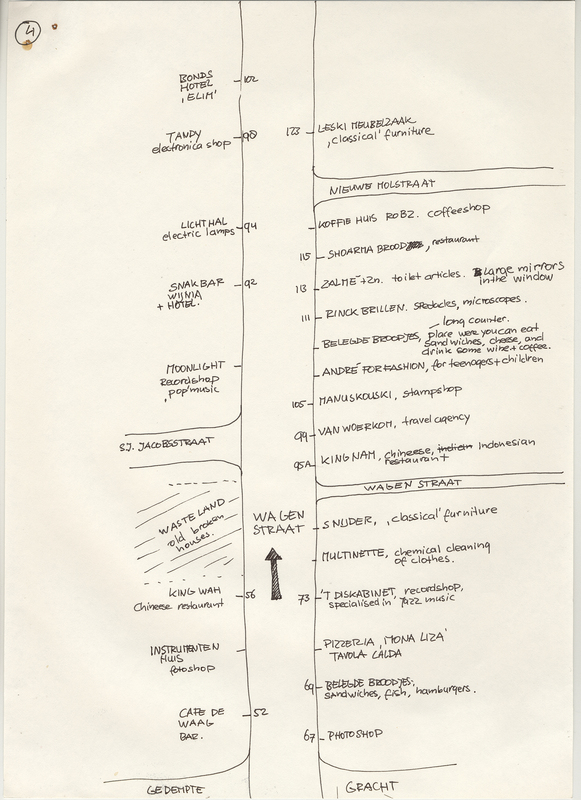 4
BONDS
HOTEL
'ELIM'
102
TANDY
electronica shop
98
LICHTHAL
electric lamps
94
SNAKBAR
WIJNIA
+ HOTEL.
92
MOONLIGHT
Recordshop
'pop'music
ST. JACOBSSTRAAT
WASTE LAND
old broken
houses.
KING WAH
Chineese restaurant
56
INSTRUMENTEN
HUIS
fotoshop
CAFE DE
WAAG
BAR.
52
GEDEMPTE
WAGEN
STRAAT
123 LESKI MEUBELZAAK
'classical' furniture
NIEUWE MOLSTRAAT
KOFFIE HUIS ROBZ. coffeeshop
115 SHOARMA BROOD, restaurant
113 ZALMÉ + Zn. toilet articles. Large mirrors
in the window
111 RINCK BRILLEN. Spectacles, microscopes.
long counter.
BELEGDE BROODJES, place were you can eat
sandwiches, cheese, and
drink some wine + coffee.
ANDRÉ FOR FASHION, for teenagers + children
105 MANUSKOUSKI, stampshop
99 VAN WOERKOM, travel agency
95A KING NAM, chineese, indien Indonesian
restaurant
WAGEN STRAAT
SNIJDER, 'classical' furniture
MULTINETTE, chemical cleaning
of clothes.
73 'T DISKABINET, recordshop,
specialised in 'Jazz music
PIZZERIA 'MONA LIZA'
TAVOLA CALDA
69 BELEGDE BROODJES;
sandwiches, fish, hamburgers.
67 PHOTOSHOP
GRACHT